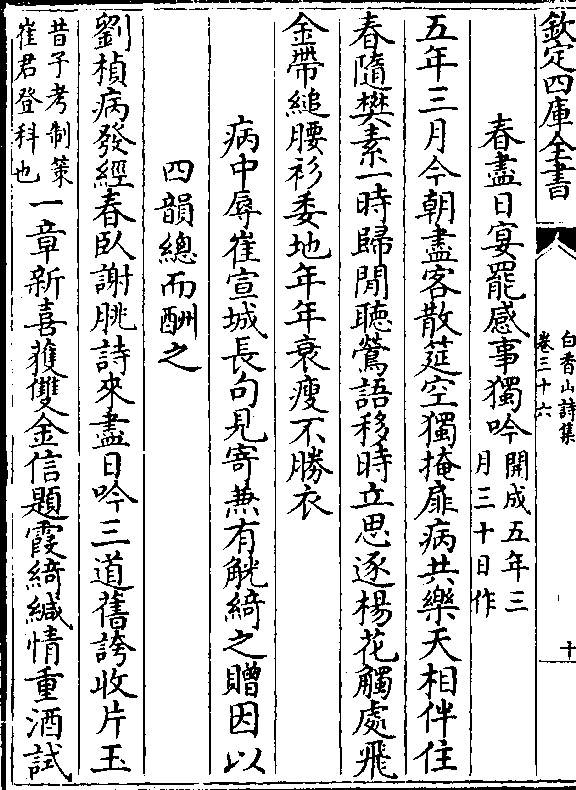 欽定四庫全書
白香山詩集
卷三十六
十
春盡日宴罷感事獨吟開成五年三
月三十日作
五年三月今朝盡客散筵空獨掩扉病共樂天相伴住
春隨樊素一時歸閒聽鶯語移時立思逐楊花觸處飛
金帶縋腰衫委地年年衰瘦不勝衣
病中辱崔宣城長句見寄兼有觥綺之贈因以
四韻總而酬之
劉楨病發經春臥謝朓詩來盡日吟三道舊誇收片玉
昔予考制策
崔君登科也
一章新喜獲雙金信題霞綺緘情重酒試